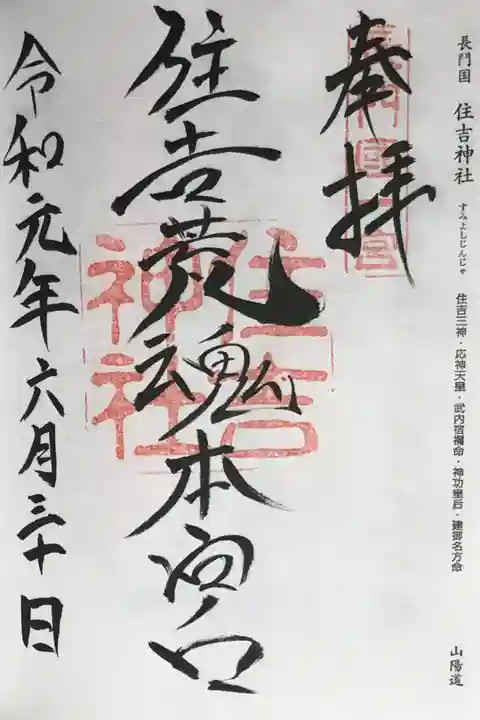 長門国 住吉神社 すみよしじんじゃ 住吉三神・応神天皇・武内宿禰命・神功皇后・建御名方命 山陽道
奉拝
長門國一宮
住吉荒魂本宮
住吉神社
令和元年六月三十日